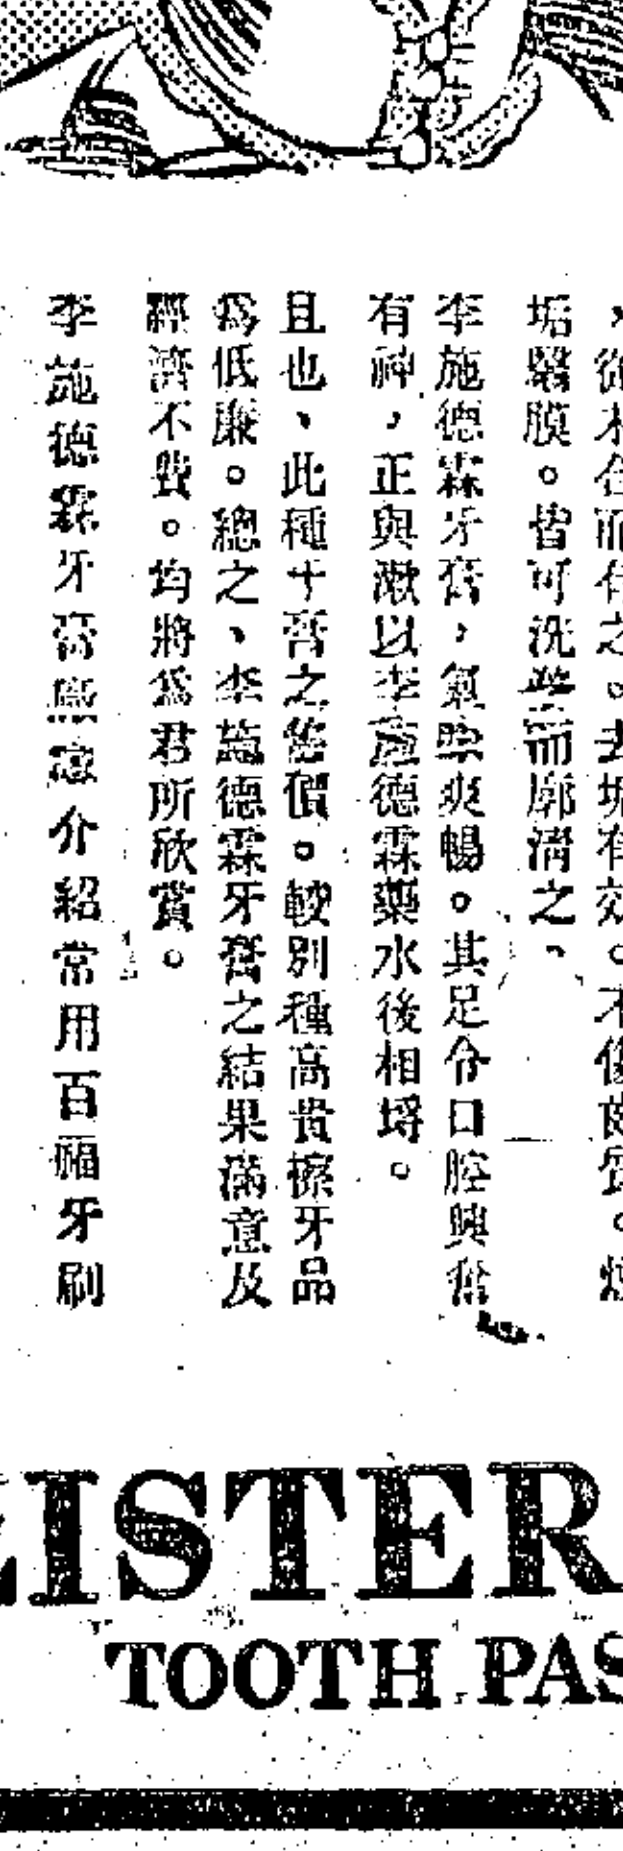 垢翳膜。皆可洗 而廓清之、
李施德霖牙膏，氣味爽暢。其足令口腔興奮
有神，正與漱以李施德霖藥水後相埒。
且也、此種牙膏之售價。較別種高貴擦牙品
爲低廉。總之、李施德霖牙膏之結果滿意及
經濟不費。均將爲君所欣賞。
李施德霖牙膏 介紹常用百福牙刷
ISTER
TOOTH PAS